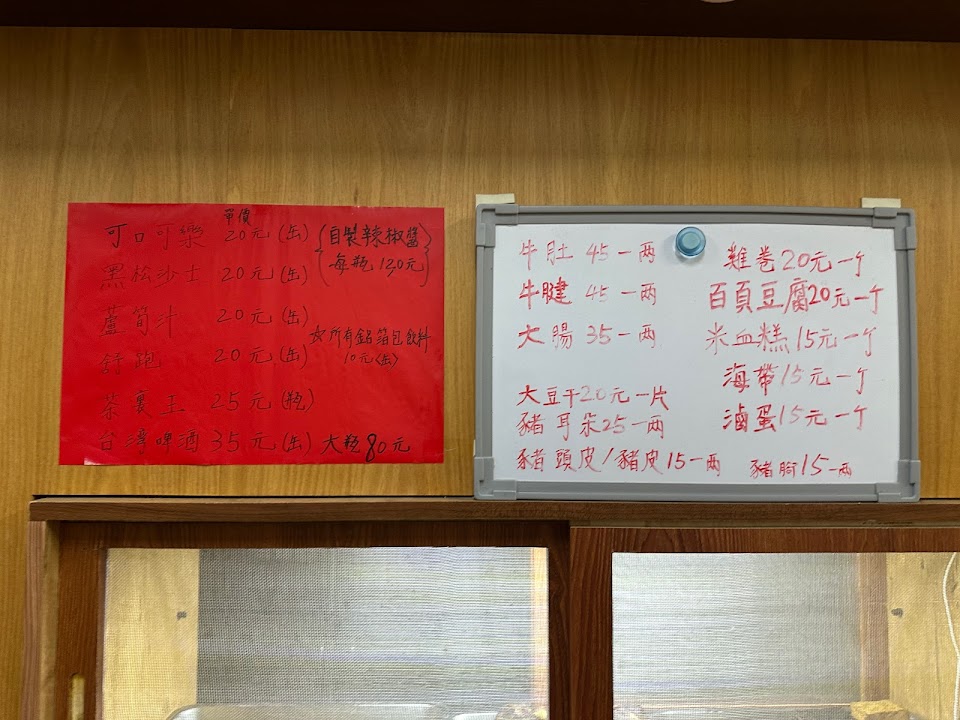 單價
可口可樂 20元(缶)
黑松沙士 20元(缶)
蘆筍汁 20元(缶)
舒跑 20元(缶)
茶裏王 25元(瓶)
台灣啤酒 35元(缶) 大瓶80元
{自製辣椒醬}
每瓶130元
所有鋁箔包飲料
10元(缶)
牛肚 45一両
牛腱 45一両
大腸 35一両
大豆干20元一片
豬耳朵25一両
豬頭皮/豬皮15一両
雞卷20元一个
百頁豆腐20元一个
米血糕15元一个
海帶15元一个
滷蛋15元一个
豬腳15一両